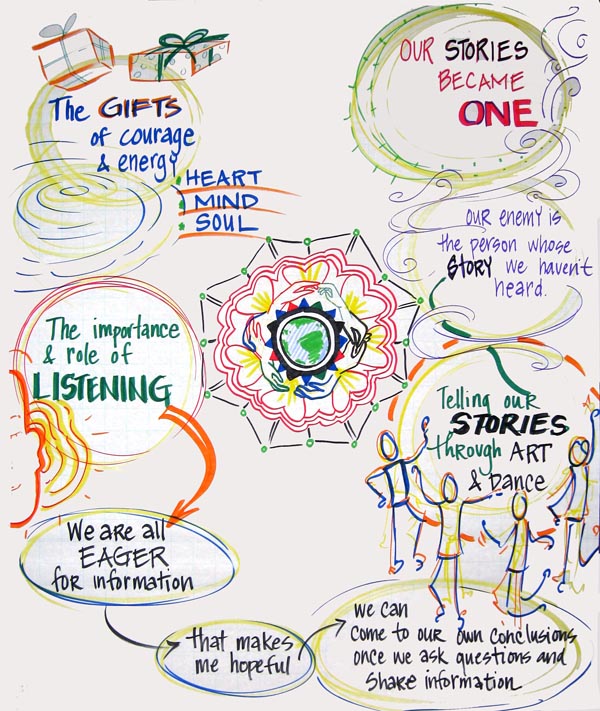 The GIFTS
of courage
& energy
HEART
MIND
SOUL
The importance
& role of
LISTENING
We are all
EAGER
for information
that makes
me hopeful
we can
come to our own conclusions
once we ask questions and
share information
OUR STORIES
BECAME
ONE
OUR enemy is
the person whose
STORY we haven't
heard.
Telling our
STORIES
through ART
& Dance